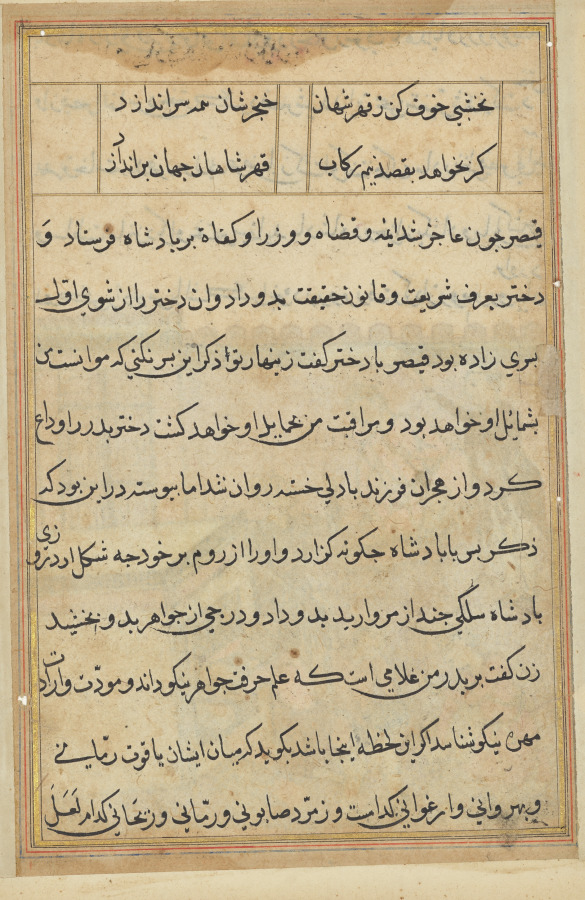 نخشبی خوف کن ز قهر شهان خنجر شان همه سر اندازد
کر بخواهد بقصد نیم رکاب قهر شاهان جهان براندازد
قیصر چون عاجز شد ایمه و قضاه و وزرا و کفاة بر بادشاه فرستاد و
دختر بعرف شریعت و قانون حقیقت بدو داد و ان دختر را از شوی اول
بسری زاده بود قیصر با دختر کفت زینهار تو ذکر این بسر نکنی که موانست من
بشمایل او خواهد بود و مراقبت من بمخایل او خواهد کشت دختر بدر را وداع
کرد و از هجران فرزند با دلی خسته روان شد اما بیوسته در این بود که
ذکر بسر با بادشاه جکونه کزارد و او را از روم بر خود جه شکل ارد روزی
بادشاه سلکی جند از مروارید بدو داد و درجی از جواهر بدو بخشید
زن کفت بر بدر من غلامی است که علم حرفت جواهر نیکو داند و مودت وارادات
مهره نیکو شناسد اکر این لحظه اینجا باشد بکوید که میان ایشان یاقوت رمانی
و بهروانی و ارغوانی کدامست و زمرد صابونی و رمانی و زنجانی کدام لعل